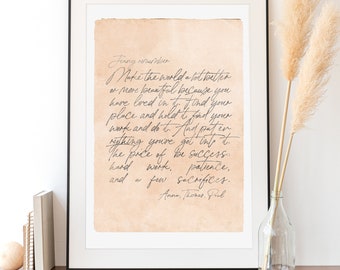 Make the world a bit better
or more beautiful because you
have lived in it. Find your
place and hold it find your
work and do it. And put
you've got into it
The price of success
hard work, patience,
and a few sacrifices.